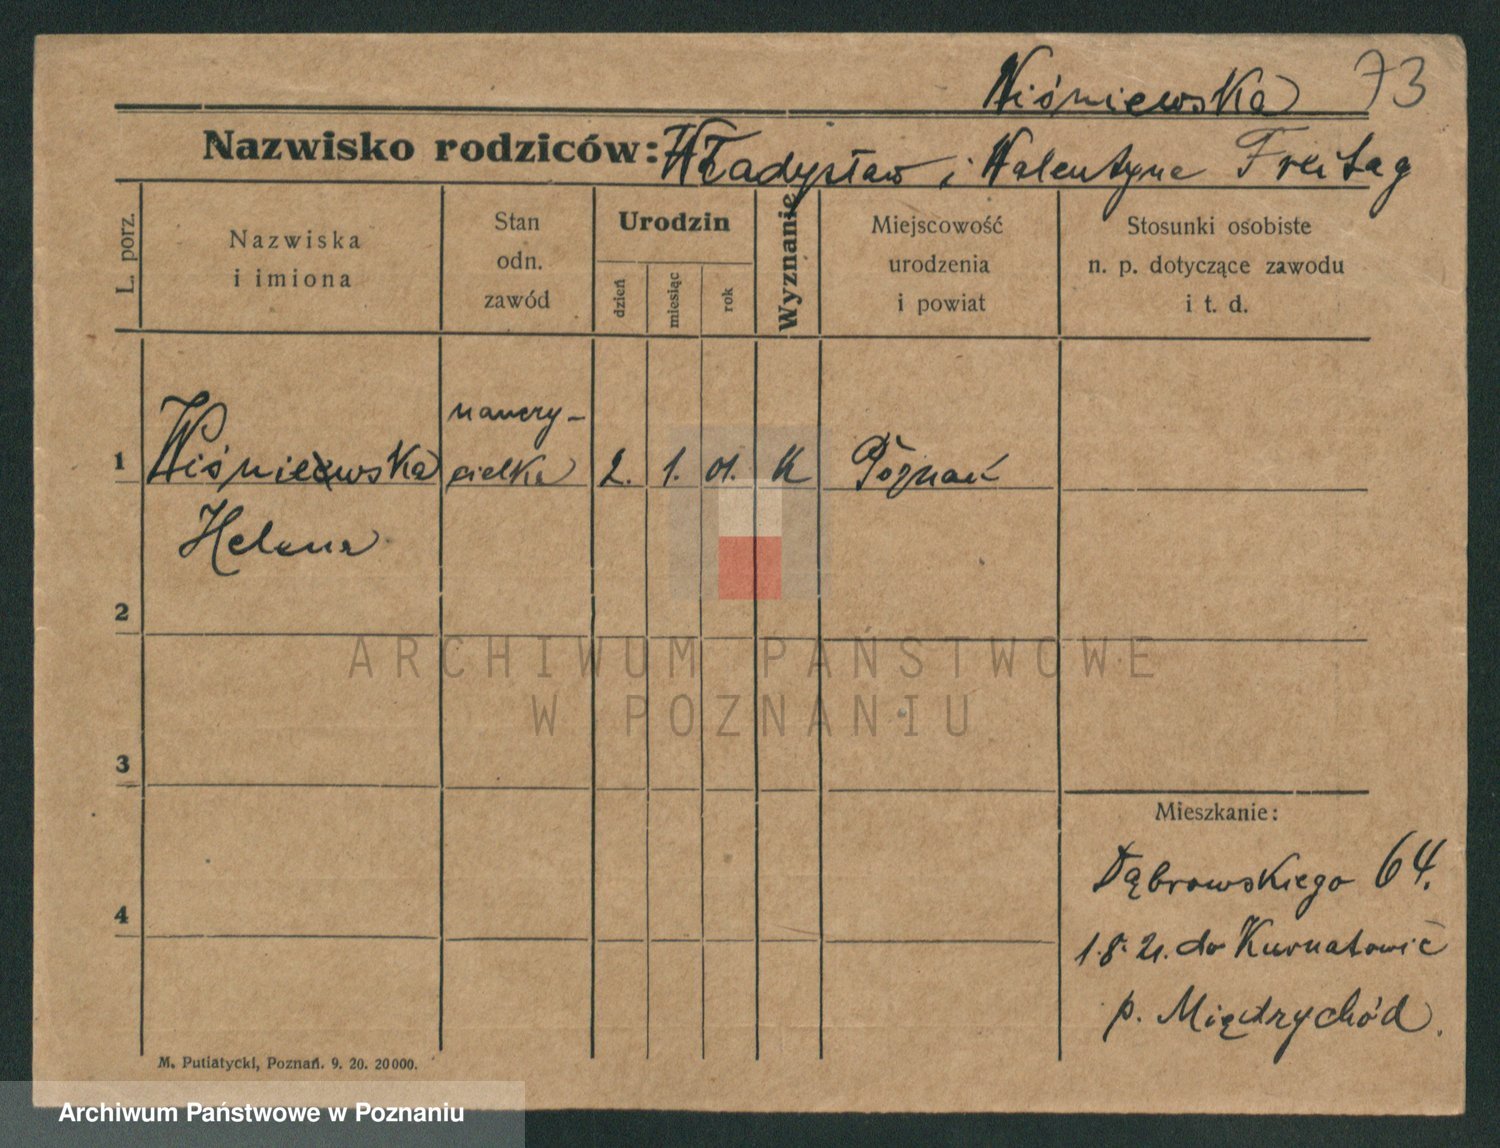 Wiśniewska 73
Nazwisko rodziców: Władysław i Walentyna Freitag
L. porz.
Nazwiska
i imiona
Stan
odn.
zawód
Urodzin
dzień
miesiąc
rok
Wyznanie
Miejscowość
urodzenia
i powiat
Stosunki osobiste
n. p. dotyczące zawodu
i t. d.
nauczy-
1 Wiśniewska cielka 2. 1. 01. K Poznań
Helena
2
ARCHIWUM PAŃSTWOWE
W POZNANIU
3
Mieszkanie:
Dąbrowskiego 64.
1.8.21. do Kurnatowic
4
p. Międzychód.
M. Putiatycki, Poznań. 9. 20. 20000.
Archiwum Państwowe w Poznaniu